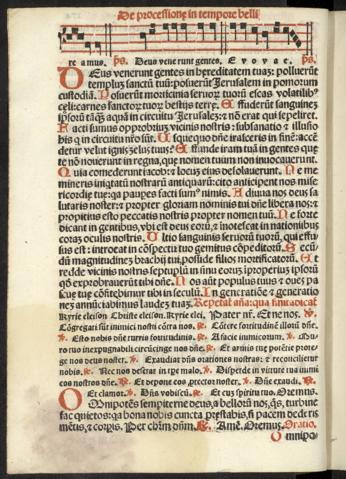 De processione in tempore belli
re amus. ps. Deus vene runt gentes. E v o v a e. ps.
DEus venerunt gentes in hereditatem tuaz: polluerūt
templuz sanctū tuū: posuerūt Jerusalem in pomorum
custodiā. Posuerūt morticinia servorȝ tuorū escas volatilibꝰ
celi: carnes sanctorȝ tuorȝ bestijs terre. Effuderūt sanguinez
ipsorū tāqȝ aquā in circuitu Jerusalez: et nō erat qui sepeliret.
Facti sumus opprobriuȝ vicinis nostris: subsanatio et illusio
his qui in circuitu nr̄o sūt. Usquequo dn̄e irasceris in finē: accē
detur velut ignis zelus tuus? Effunde iram tuā in gentes que
te nō nouerunt: et in regna, que nomen tuum non inuocauerunt.
Quia comederunt iacob: et locuȝ eius desolauerunt. Ne me
mineris iniqtatū nostrarū antiquarū: cito anticipent nos mise
ricordie tue: qa pauperes facti sumꝰ nimis. Adiuua nos deus sa
lutaris noster: et propter gloriam nominis tui dn̄e libera nos: et
propitius esto peccatis nostris propter nomen tuū. Ne forte
dicant in gentibus, vbi est deus eorū, et inotescat in nationibus
coraȝ oculis nostris. Ultio sanguinis servorū tuorū, qui effu
sus est: introeat in cōspectu tuo gemitus cōpeditorū. Secū
dū magnitudinez brachij tui, posside filios mortificatorū. Et
redde vicinis nostris septuplū in sinu eorȝ: īproperiuȝ ipsorū
qd̄ exprobrauerūt tibi dn̄e. Nos aūt populus tuus et oues pa
scue tue cōfitebimur tibi in seculū. In generationē et generatio
nez annūciabimus laudeȝ tuaȝ. Repetat añā: qua finita dicat
Kyrie eleison Christe eleison. Kyrie elei. Pater nr̄. Et ne nos. ℣.
Cōgregati sūt inimici nostri cōtra nos. ℟. Cōtere fortitudinē illorū dn̄e.
℣. Esto nobis dn̄e turris fortitudinis. ℟. A facie inimicorum. ℣. Mu
ro tuo inexpugnabili circūcinge nos dn̄e. ℟. Et armis tue potētie prote
ge nos deus noster. ℣. Exaudiat dn̄s orationes nostras: et reconcilietur
nobis. ℟. Nec nos deserat in tp̄e malo. ℣. Disperde in virtute tua inimi
cos nostros dn̄e. ℟. Et depone eos protector noster. ℣. Dn̄e exaudi. ℟.
Et clamor. ℣. Dn̄s vobiscū. ℟. Et cuȝ spiritu tuo. Oremus.
OMnipotēs sempiterne deus, a bellorū nos, qs̄, turbine
fac quietos: qa bona nobis cuncta prestabis, si pacem dederis
mētis, et corpis. Per chr̄m dn̄m. ℟. Amē. Oremus. Oratio.
Omnipo